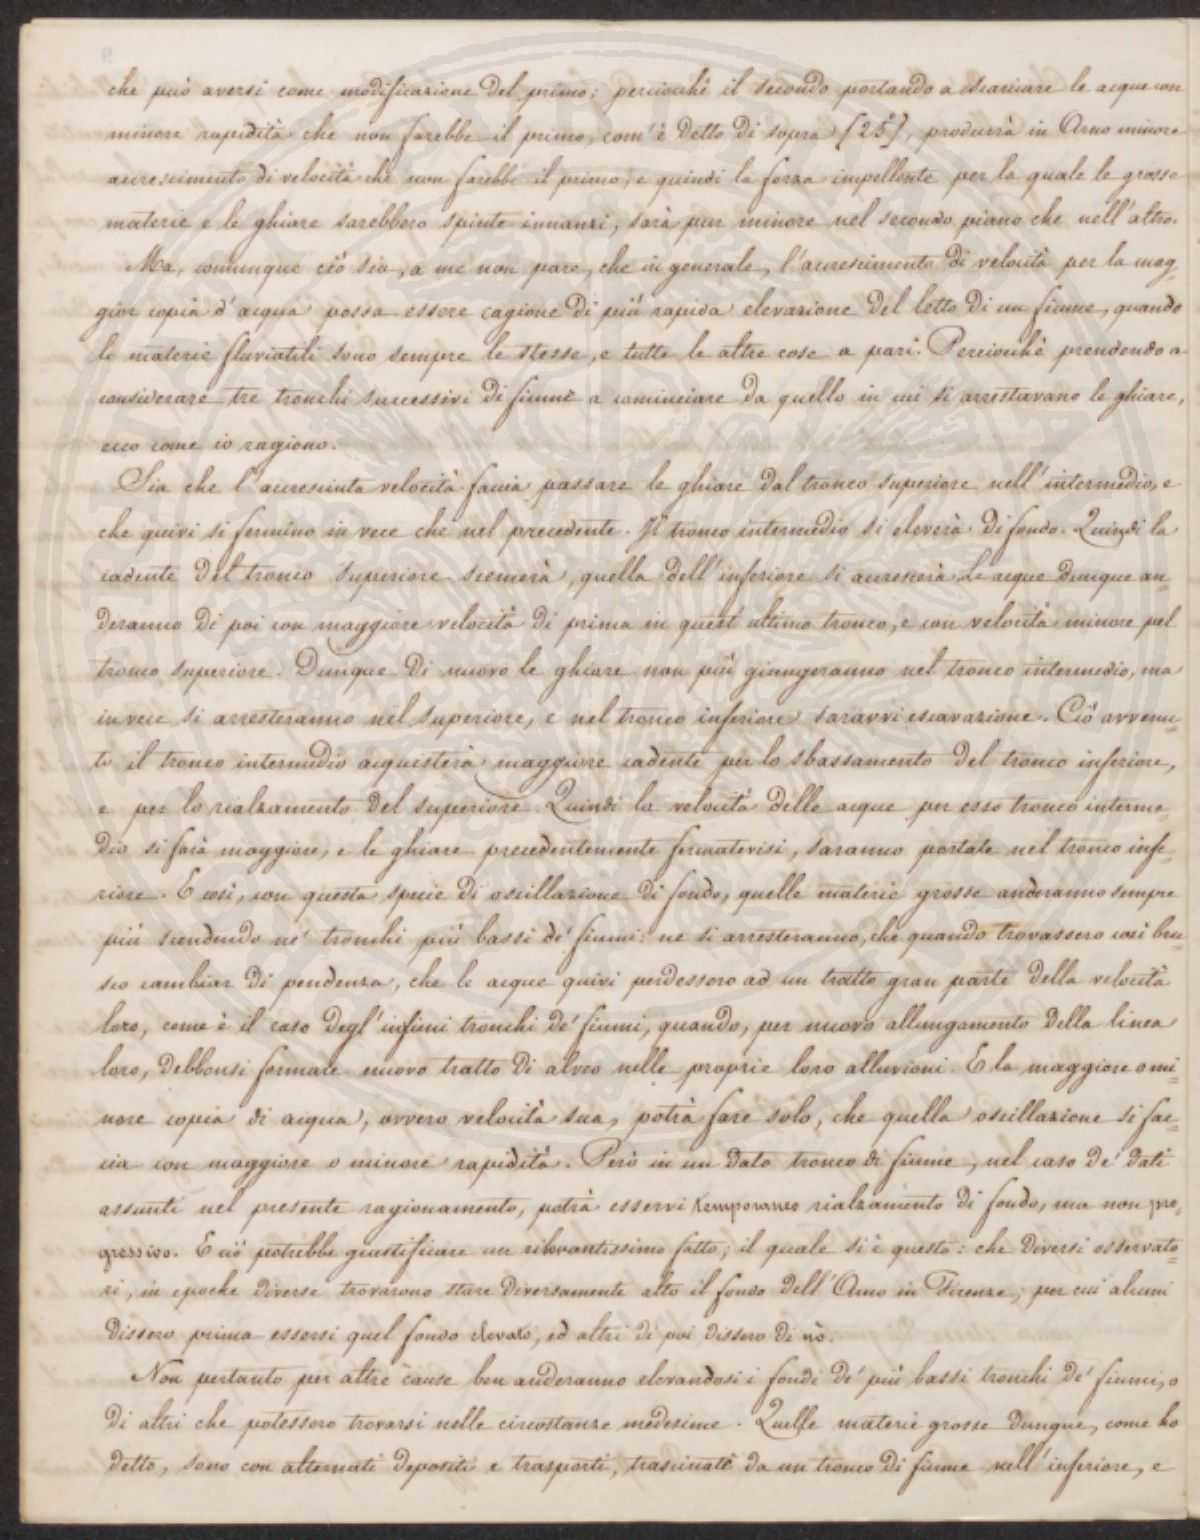 che può aversi come modificazione del primo; perciocchè il secondo portando a scaricare le acque con
minore rapidità che non farebbe il primo, com'è detto di sopra [25], produrrà in Arno minore
accrescimento di velocità che non farebbe il primo, e quindi la forza impellente per la quale le grosse
materie e le ghiare sarebbero spinte innanzi, sarà pur minore nel secondo piano che nell'altro.
Ma, comunque ciò sia, a me non pare, che in generale, l'accrescimento di velocità per la mag=
gior copia d'acqua possa essere cagione di più rapida elevazione del letto di un fiume, quando
le materie fluviatili sono sempre le stesse, e tutte le altre cose a pari. Perciocchè prendendo a
considerare tre tronchi successivi di fiume a cominciare da quello in cui si arrestavano le ghiare,
ecco come io ragiono.
Sia che l'accresciuta velocità faccia passare le ghiare dal tronco superiore nell'intermedio, e
che quivi si fermino in vece che nel precedente. Il tronco intermedio si eleverà di fondo. Quindi la
cadente del tronco superiore scemerà, quella dell'inferiore si accrescerà. Le acque dunque an=
deranno di poi con maggiore velocità di prima in quest'ultimo tronco, e con velocità minore pel
tronco superiore. Dunque di nuovo le ghiare non più giungeranno nel tronco intermedio, ma
in vece si arresteranno nel superiore, e nel tronco inferiore saravvi escavazione. Ciò avvenu=
to il tronco intermedio acquisterà maggiore cadente per lo sbassamento del tronco inferiore,
e per lo rialzamento del superiore. Quindi la velocità delle acque per esso tronco interme=
dio si farà maggiore, e le ghiare precedentemente fermatevisi, saranno portate nel tronco infe=
riore. E così, con questa specie di oscillazione di fondo, quelle materie grosse anderanno sempre
più scendendo ne' tronchi più bassi de' fiumi: ne si arresteranno, che quando trovassero così bru=
sco cambiar di pendenza, che le acque quivi perdessero ad un tratto gran parte della velocità
loro, come è il caso degl'infimi tronchi de' fiumi, quando, per nuovo allungamento della linea
loro, debbonsi formare nuovo tratto di alveo nelle proprie loro alluvioni. E la maggiore o mi=
nore copia di acqua, ovvero velocità sua, potrà fare solo, che quella oscillazione si fac=
cia con maggiore o minore rapidità. Però in un dato tronco di fiume, nel caso de' dati
assunti nel presente ragionamento, potrà esservi temporaneo rialzamento di fondo, ma non pro=
gressivo. E ciò potrebbe giustificare un rilevantissimo fatto; il quale si è questo: che diversi osservato=
ri, in epoche diverse trovarono stare diversamente alto il fondo dell'Arno in Firenze; per cui alcuni
dissero prima essersi quel fondo elevato, ed altri di poi dissero di nò.
Non pertanto per altre cause ben anderanno elevandosi i fondi de' più bassi tronchi de' fiumi, o
di altri che potessero trovarsi nelle circostanze medesime. Quelle materie grosse dunque, come ho
detto, sono con alternati depositi e trasporti, trascinate da un tronco di fiume nell'inferiore, e